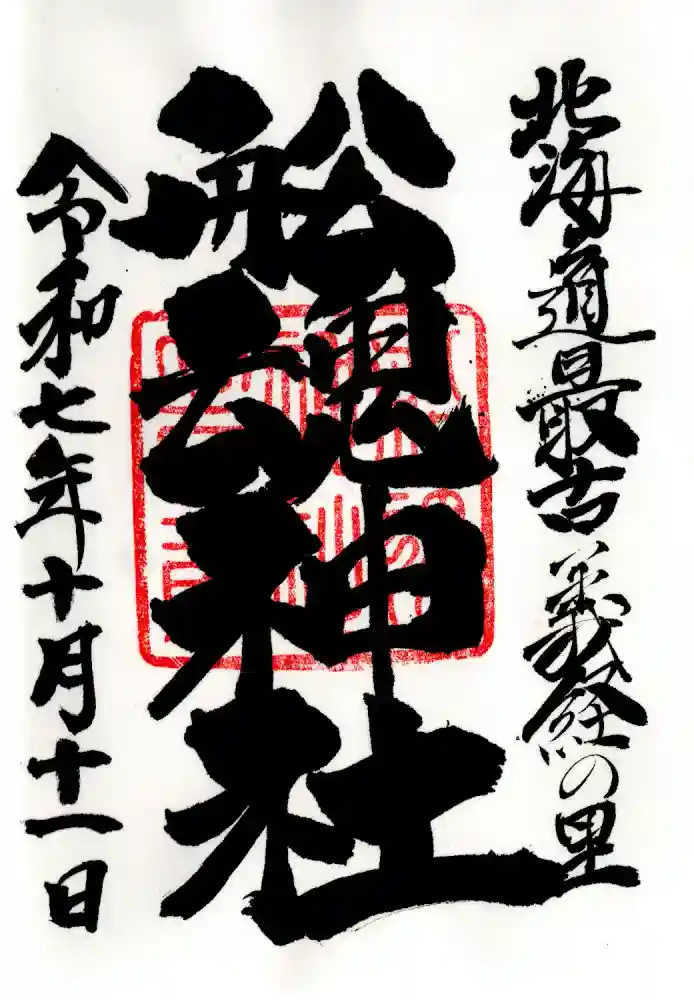 北海道最古義経の里
船魂神社
令和七年十月十一日